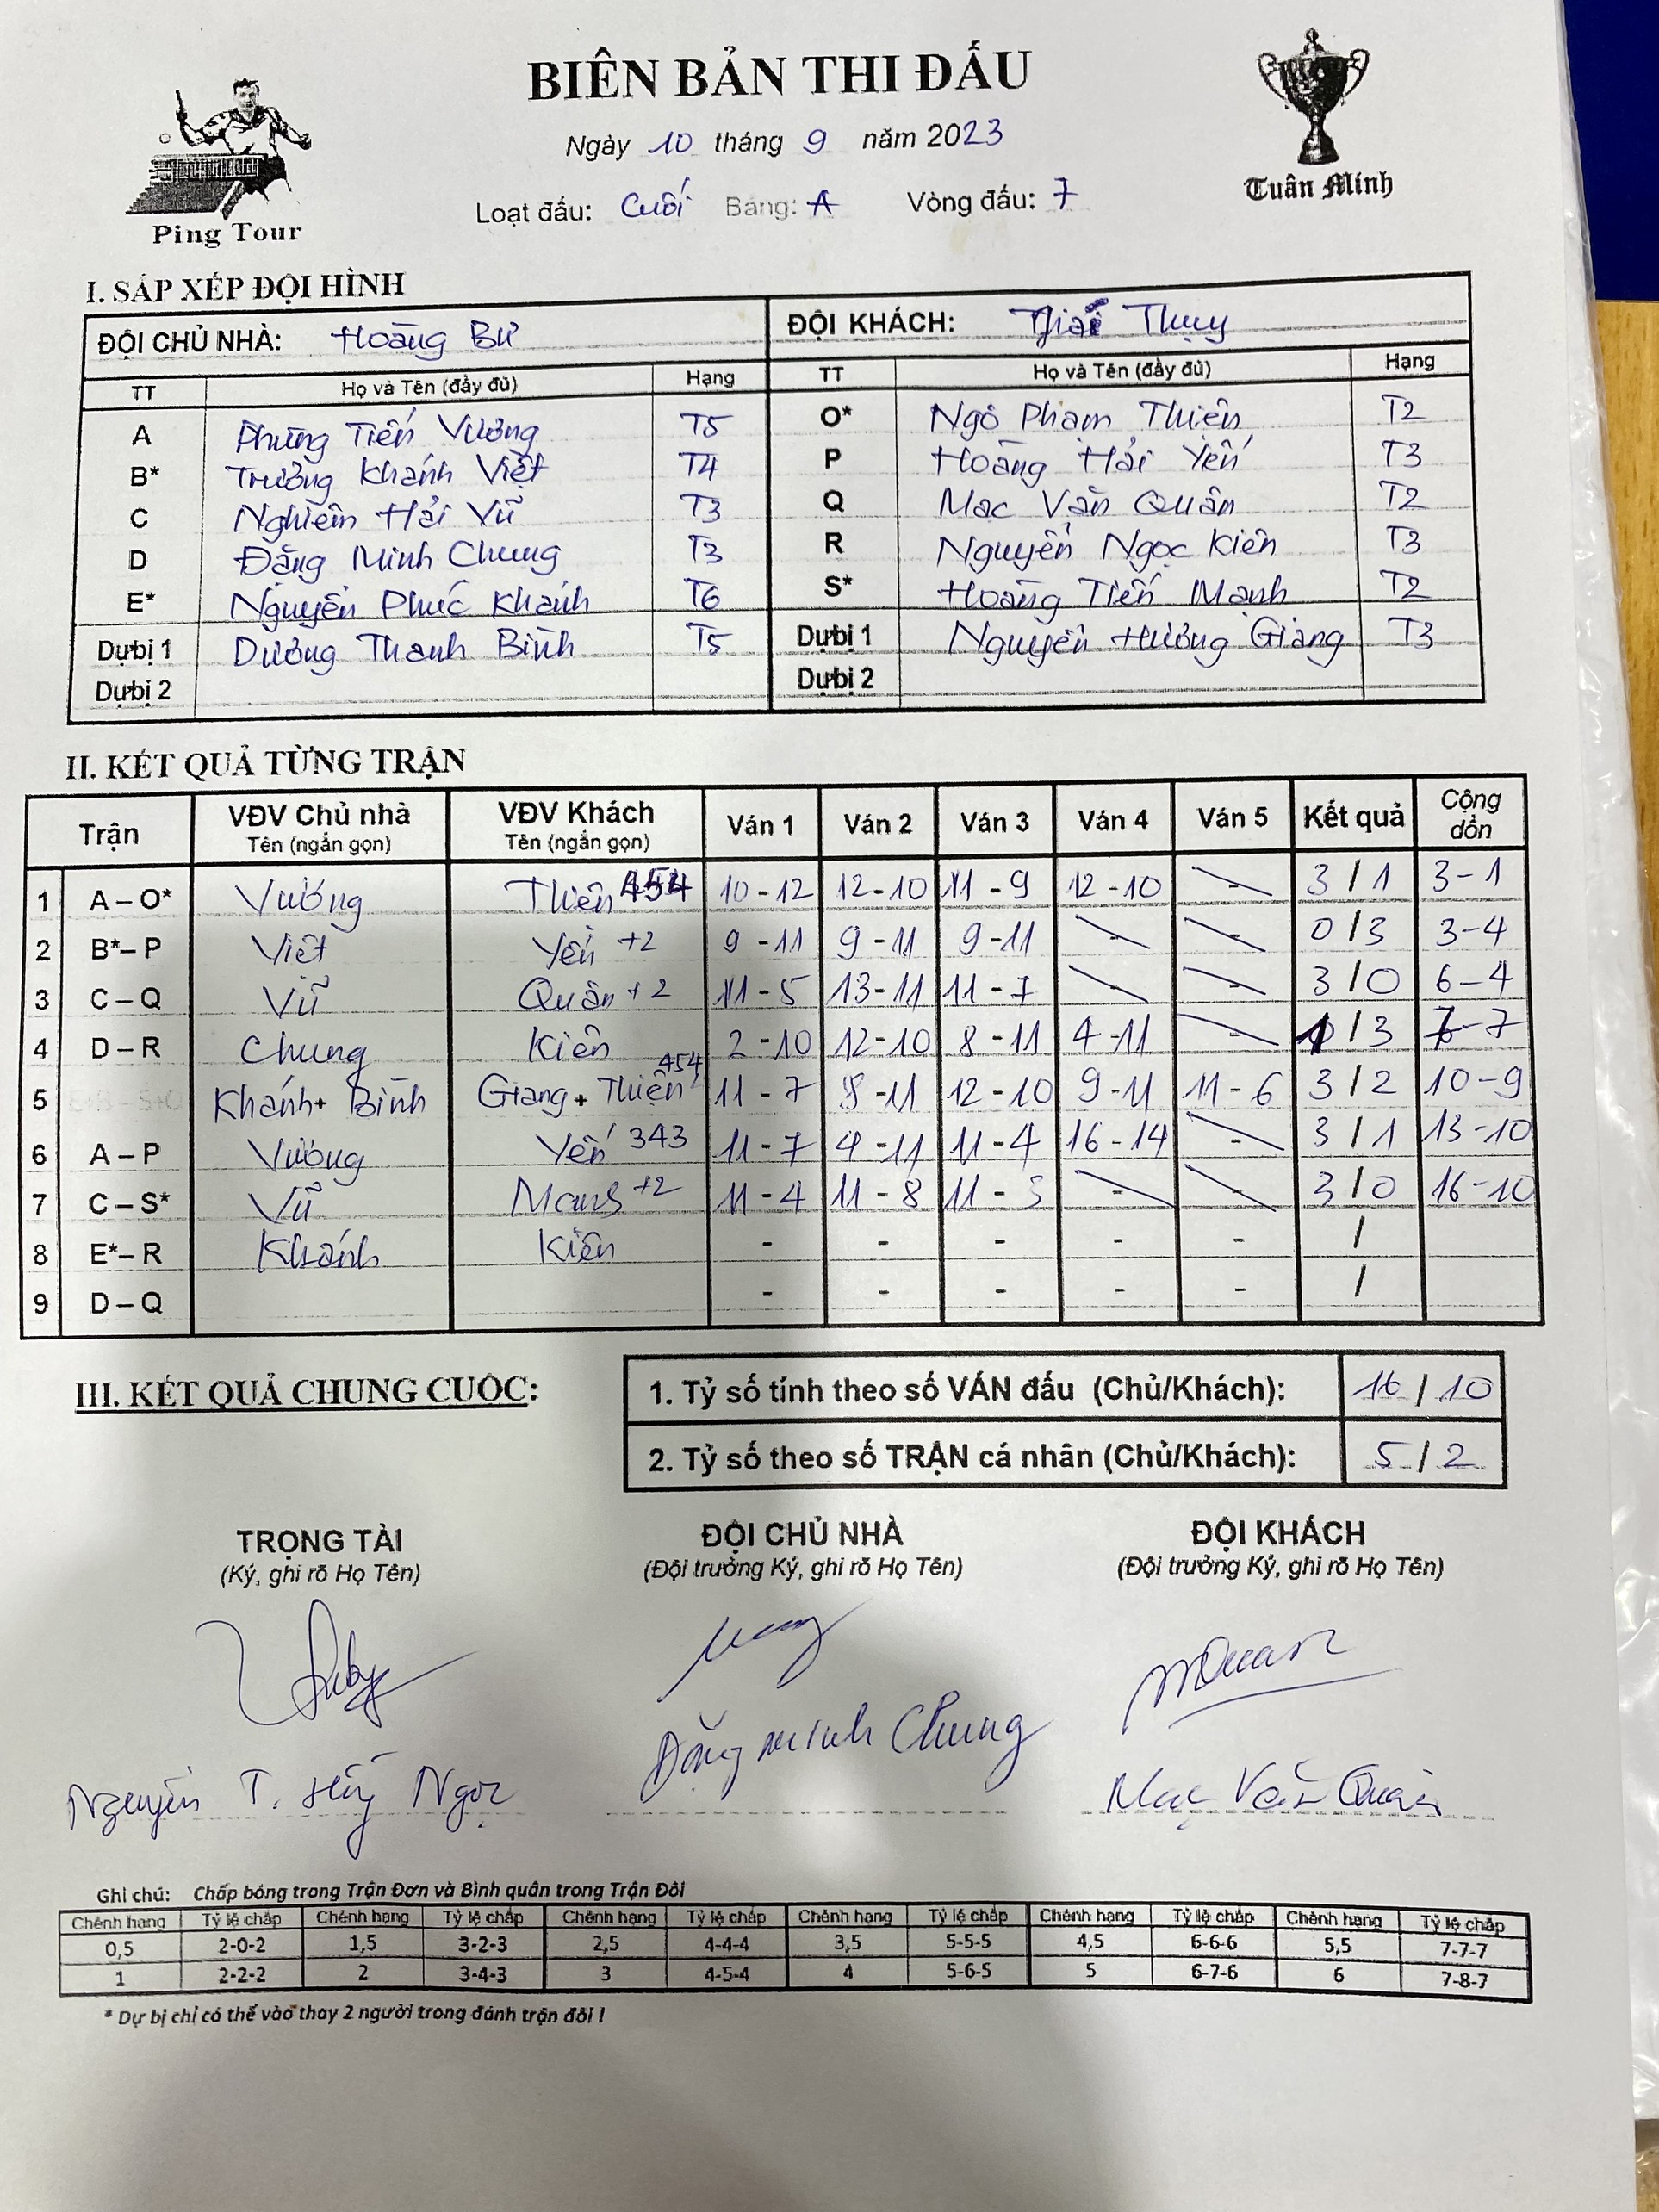 BIÊN BẢN THI ĐẤU
Ngày 10 tháng 9 năm 2023
Loạt đấu: Cuối Bảng: A Vòng đấu: 7
Ping Tour
Tuân Minh
I. SẮP XẾP ĐỘI HÌNH
ĐỘI CHỦ NHÀ: Hoàng Bư ĐỘI KHÁCH: Thái Thụy
TT Họ và Tên (đầy đủ) Hạng TT Họ và Tên (đầy đủ) Hạng
A Phùng Tiến Vương T5 O* Ngô Phạm Thiện T2
B* Trương Khánh Việt T4 P Hoàng Hải Yến T3
C Nghiêm Hải Vũ T3 Q Mac Văn Quân T2
D Đặng Minh Chung T3 R Nguyễn Ngọc Kiên T3
E* Nguyễn Phúc Khánh T6 S* Hoàng Tiến Mạnh T2
Dự bị 1 Dương Thanh Bình T5 Dự bị 1 Nguyễn Hương Giang T3
Dự bị 2 Dự bị 2
II. KẾT QUẢ TỪNG TRẬN
Trận VĐV Chủ nhà Tên (ngắn gọn) VĐV Khách Tên (ngắn gọn) Ván 1 Ván 2 Ván 3 Ván 4 Ván 5 Kết quả Cộng dồn
1 A – O* Vương Thiện 454 10 - 12 12 - 10 11 - 9 12 - 10 - 3 / 1 3 - 1
2 B* – P Việt Yến +2 9 - 11 9 - 11 9 - 11 - - 0 / 3 3 - 4
3 C – Q Vũ Quân +2 11 - 5 13 - 11 11 - 7 - - 3 / 0 6 - 4
4 D – R Chung Kiên 2 - 10 12 - 10 8 - 11 4 - 11 - 1 / 3 7 - 7
5 Khánh + Bình Giang + Thiện 454 11 - 7 8 - 11 12 - 10 9 - 11 11 - 6 3 / 2 10 - 9
6 A – P Vương Yến 343 11 - 7 4 - 11 11 - 4 16 - 14 - 3 / 1 13 - 10
7 C – S* Vũ +2 11 - 4 11 - 8 11 - - - 3 / 0 16 - 10
8 E* – R Khánh Kiên - - - - - /
9 D – Q - - - - - /
III. KẾT QUẢ CHUNG CUỘC:
1. Tỷ số tính theo số VÁN đấu (Chủ/Khách): 16 / 10
2. Tỷ số theo số TRẬN cá nhân (Chủ/Khách): 5 / 2
TRỌNG TÀI ĐỘI CHỦ NHÀ ĐỘI KHÁCH
(Ký, ghi rõ Họ Tên) (Đội trưởng Ký, ghi rõ Họ Tên) (Đội trưởng Ký, ghi rõ Họ Tên)
Nguyễn T. Ngọc Đặng Minh Chung Mạc Văn Quân
Ghi chú: Chấp bóng trong Trận Đơn và Bình quân trong Trận Đôi
Chênh hạng Tỷ lệ chấp Chênh hạng Tỷ lệ chấp Chênh hạng Tỷ lệ chấp Chênh hạng Tỷ lệ chấp Chênh hạng Tỷ lệ chấp Chênh hạng Tỷ lệ chấp
0,5 2-0-2 1,5 3-2-3 2,5 4-4-4 3,5 5-5-5 4,5 6-6-6 5,5 7-7-7
1 2-2-2 2 3-4-3 3 4-5-4 4 5-6-5 5 6-7-6 6 7-8-7
* Dự bị chỉ có thể vào thay 2 người trong đánh trận đôi !